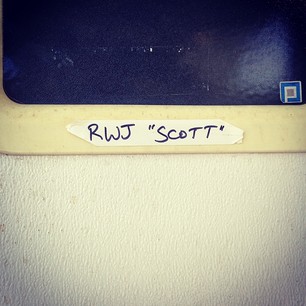 RWJ "SCOTT"